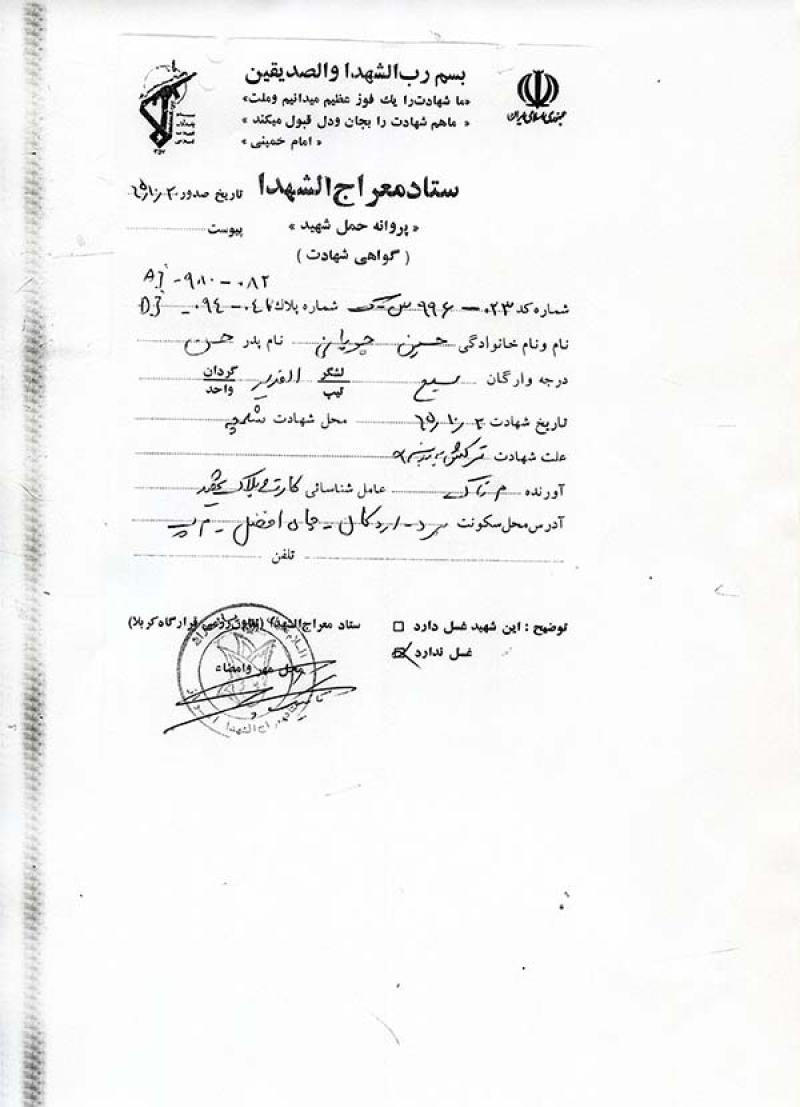 بسم رب الشهدا والصدیقین
«ما شهادت را یك فوز عظیم میدانیم وملت»
« ماهم شهادت را بجان ودل قبول میکند »
« امام خمینی »
جمهوری اسلامی ایران
ستاد معراج الشهدا
تاریخ صدور ۶۵/۱۰/۳۰
« پروانه حمل شهید »
پیوست
( گواهی شهادت )
AJ -۹۸۰-۰۸۲
شماره کد ۰۲۳ — ۹۹۶ س ک شماره پلاك ۰۴۷-۰۹۴
نام ونام خانوادگی حسین چوپانی نام پدر حسن
درجه وارگان بسیج لشگر تیپ الغدیر گردان واحد
تاریخ شهادت ۶۵/۱۰/۳۰ محل شهادت شلمچه
علت شهادت ترکش به
آورنده عامل شناسائی کارت و پلاک
آدرس محل سکونت یزد - اردکان - چاه افضل -
تلفن
توضیح : این شهید غسل دارد □
غسل ندارد
ستاد معراج الشهدا قرارگاه کربلا)
محل مهر وامضاء